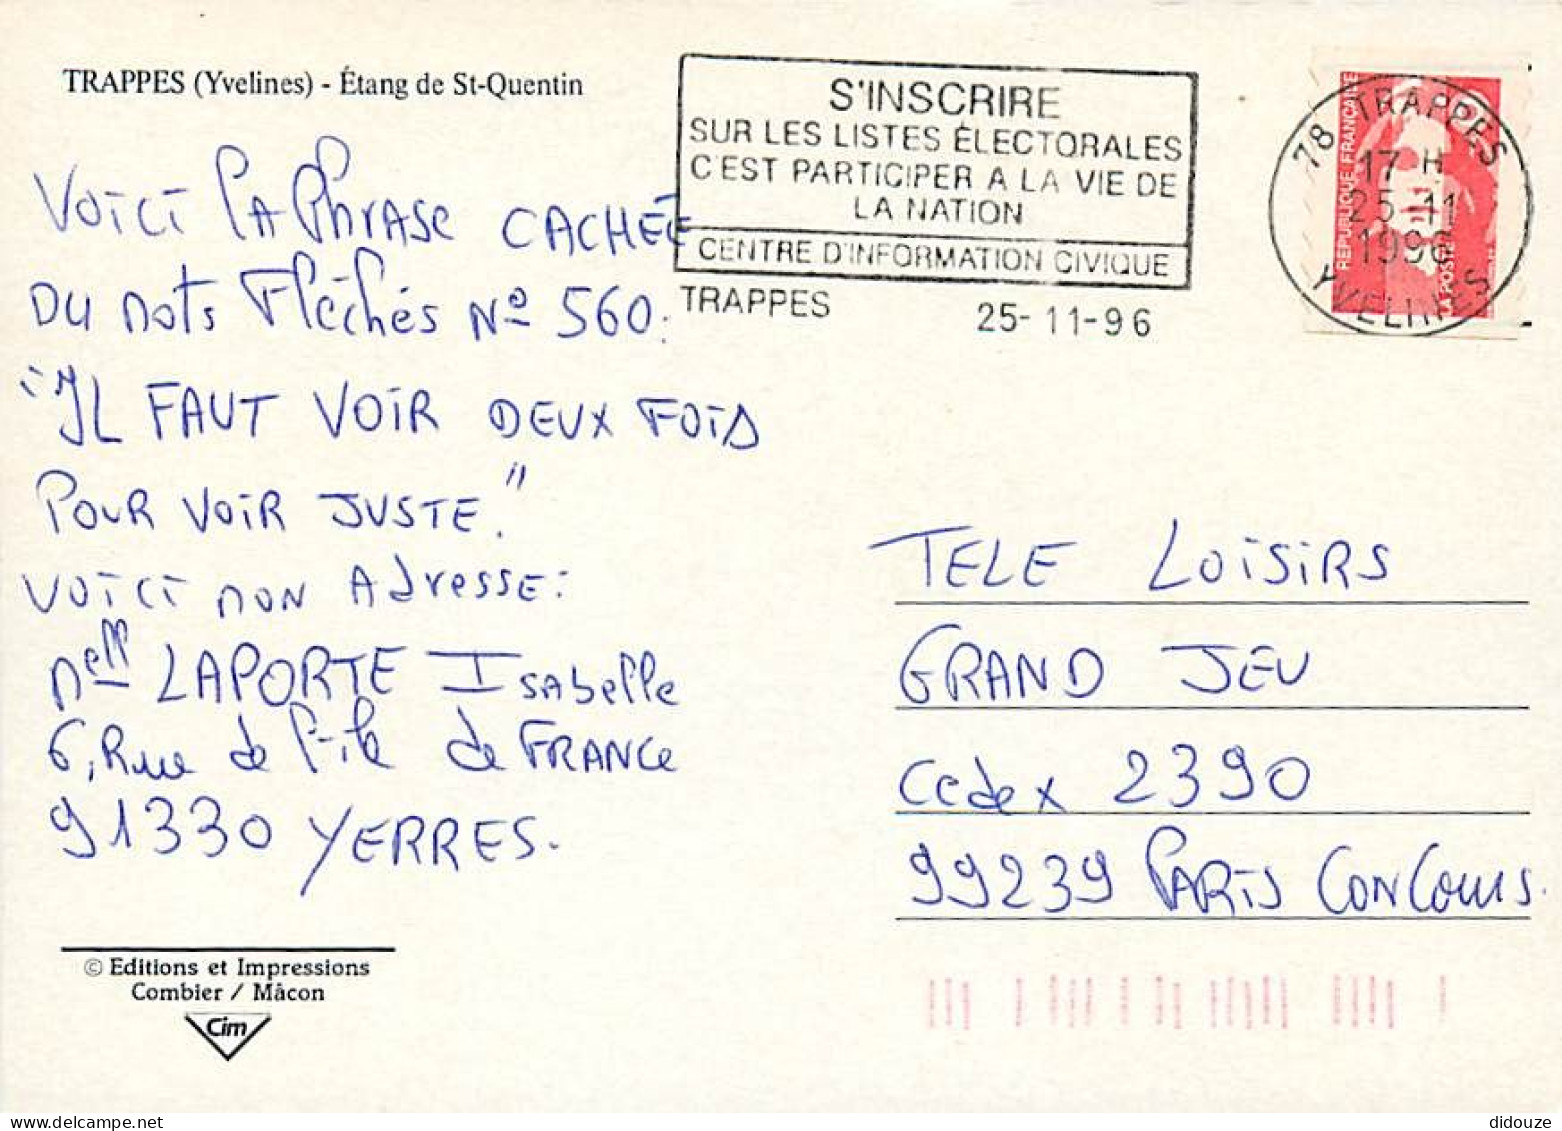 TRAPPES (Yvelines) - Étang de St-Quentin
S'INSCRIRE
SUR LES LISTES ÉLECTORALES
C'EST PARTICIPER A LA VIE DE
LA NATION
CENTRE D'INFORMATION CIVIQUE
TRAPPES 25-11-96
78 TRAPPES
17 H
25-11
1996
YVELINES
REPUBLIQUE FRANÇAISE
LA POSTE
VOICI LA PhrASE CACHÉE
DU mots Fléchés Nº 560:
"IL FAUT VOIR DEUX FOIS
POUR VOIR JUSTE."
VOICI mon Adresse:
Melle LAPORTE Isabelle
6, Rue de l'île de FRANCe
91330 YERRES.
TELE LOiSiRS
GRAND JEU
Cedex 2390
99239 PARIS CONCours.
© Editions et Impressions
Combier / Mâcon
Cim
didouze